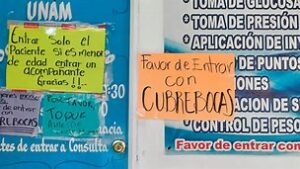 UNAM
Entrar Solo el
Paciente si es menor
de edad entrar un
acompañante
Gracias!!
de entrar
con
REBOCAS
POR FAVOR
TOQUE
tes de entrar a Consulta
Favor de Entrar
con
CUBREBOCAS
TOMA DE GLUCOSA
TOMA DE PRESIÓN
APLICACIÓN DE IN
DE PUNTOS
CIONES
ACION DE S
CONTROL DE PESO
Favor de entrar con